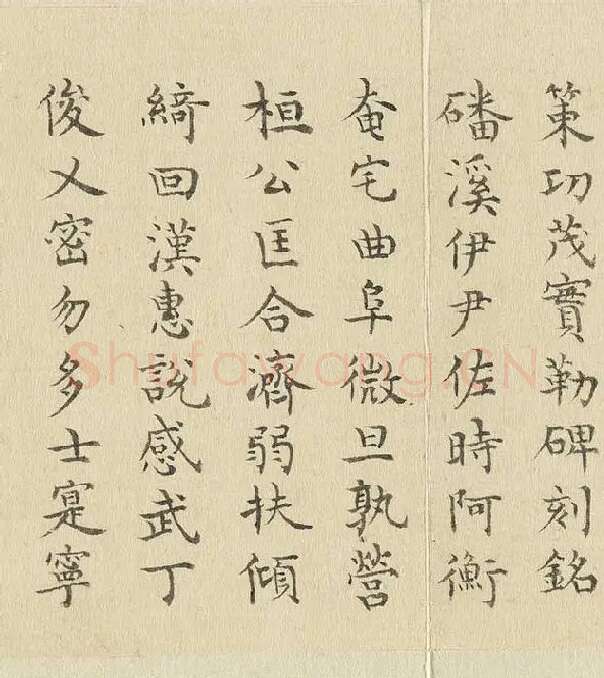 策功茂實勒碑刻銘
磻溪伊尹佐時阿衡
奄宅曲阜微旦孰營
桓公匡合濟弱扶傾
綺回漢惠說感武丁
俊乂密勿多士寔寧
Shufawang.CN